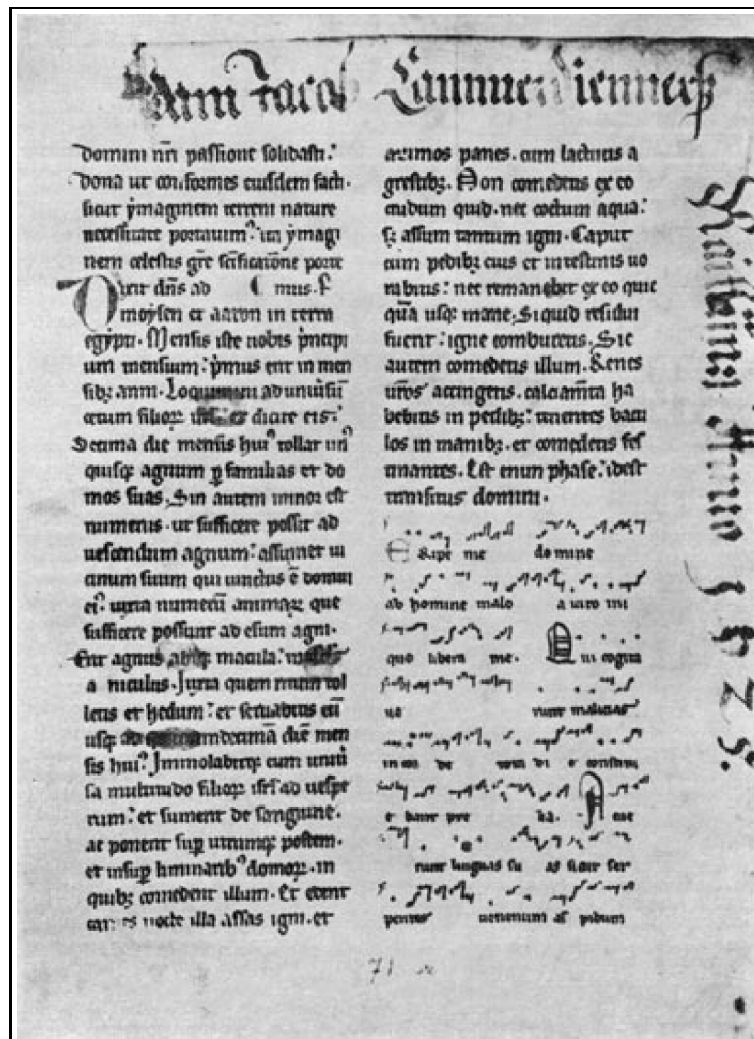 domini nri passione soldasti.
dona ut conformes eiusdem facti.
sicut ymaginem terreni nature
necessitate portauim9. ita ymagi
nem celestis gre scificatione porte
mus.
Dixit dns ad
moysen et aaron in terra
egypti. Mensis iste uobis pncipi
um mensium. pmus erit in men
sibz anni. Loquimini ad uniuersu
cetum filioꝝ isrl et dicite eis.
Decima die mensis hui9 tollat un9
quisqz agnum p familias et do
mos suas. Sin autem minor est
numerus. ut sufficere possit ad
uescendum agnum. assumet ui
cinum suum qui iunctus ē domui
ei9. iuxta numerū animaꝝ que
sufficere possunt ad esum agni.
Erit agnus absqz macula.
a niculus. Juxta quem ritum tol
letis et hedum. et seruabitis eū
usqz ad decimā diē men
sis hui9. Immolabitqz eum uniu
sa multitudo filioꝝ isrl ad uespe
rum. et sument de sanguine.
ac ponent sup utrumqz postem.
et insup liminarib9 domoꝝ. in
quibz comedent illum. Et edent
carnes nocte illa assas igni. et
azimos panes. cum lactucis a
grestibz. Non comedetis ex eo
crudum quid. nec coctum aqua.
sz assum tantum igni. Caput
cum pedibz eius et intestinis uo
rabitis. nec remanebit ex eo quic
quā usqz mane. Siquid residui
fuerit. igne comburetis. Sic
autem comedetis illum. Renes
uros accingetis. calciamta ha
bebitis in pedibz. tenentes bacu
los in manibz. et comedetis fes
tinantes. Est enim phase. idest
transitus domini.
Eripe me domine
ab homine malo a uiro ini
quo libera me. Qui cogita
ue runt malicias
in cor de tota di e constitu
e bant pre lia. Acue
runt linguas su as sicut ser
pentes uenenum as pidum
71
Anno 1625.